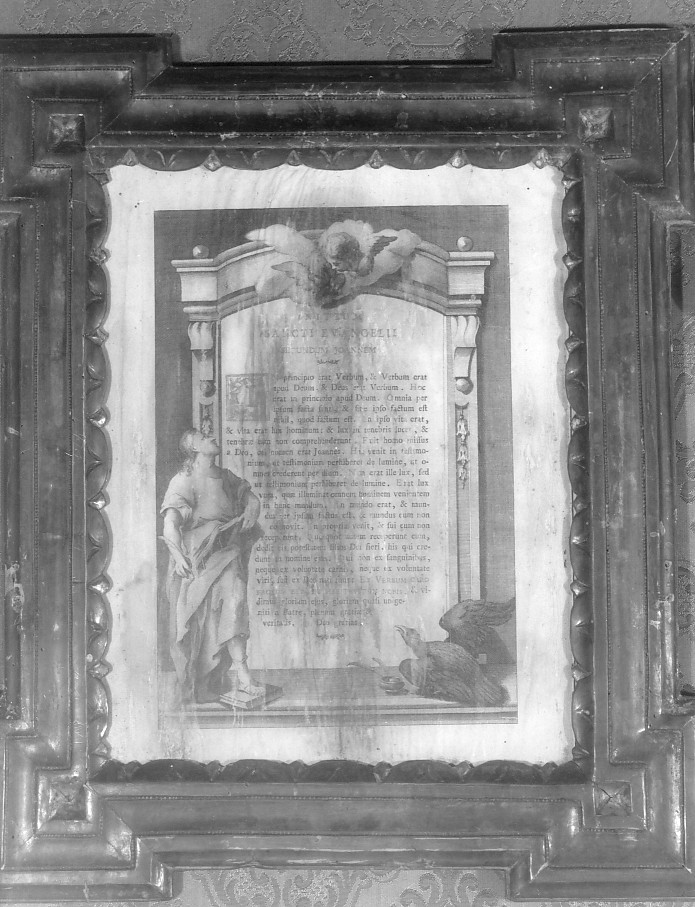 INITIUM
SANCTI EVANGELII
SECUNDUM JOANNEM
principio erat Verbum, & Verbum erat
apud Deum, & Deus erat Verbum. Hoc
erat in principio apud Deum. Omnia per
ipsum facta sunt, & sine ipso factum est
nihil, quod factum est. In ipso vita erat,
& vita erat lux hominum: & lux in tenebris lucet, &
tenebræ eam non comprehenderunt. Fuit homo missus
a Deo, cui nomen erat Joannes. Hic venit in testimo-
nium, ut testimonium perhiberet de lumine, ut o-
mnes crederent per illum. Non erat ille lux, sed
ut testimonium perhiberet de lumine. Erat lux
vera, quæ illuminat omnem hominem venientem
in hunc mundum. In mundo erat, & mun-
dus per ipsum factus est, & mundus eum non
cognovit. In propria venit, & sui eum non
receperunt. Quotquot autem receperunt eum,
dedit eis potestatem filios Dei fieri, his qui cre-
dunt in nomine ejus: qui non ex sanguinibus,
neque ex voluntate carnis, neque ex voluntate
viri, sed ex Deo nati sunt. Et Verbum caro
factum est, & habitavit in nobis: & vi-
dimus gloriam ejus, gloriam quasi unige-
niti a Patre, plenum gratiæ &
veritatis. Deo gratias.